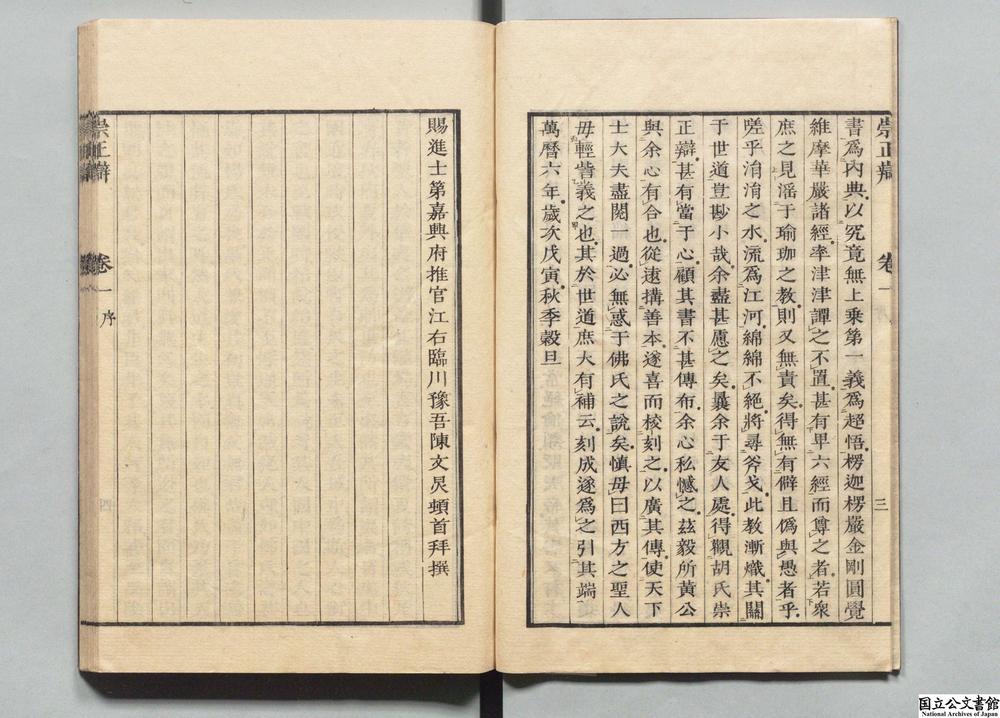 崇正辯 卷一 序 三
書爲內典以究竟無上乘第一義爲超悟楞迦楞嚴金剛圓覺
維摩華嚴諸經率津津譚之不置甚有卑六經而尊之者若衆
庶之見滛于瑜珈之教則又無責矣得無有僻且僞與愚者乎
嗟乎涓涓之水流爲江河綿綿不絕將尋斧戈此教漸熾其關
于世道豈尠小哉余盡甚慝之矣曩余于友人處得觀胡氏崇
正辯甚有當于心顧其書不甚傳布余心私憾之玆毅所黃公
與余心有合也從遠搆善本遂喜而梭刻之以廣其傳使天下
士大夫盡閱一過必無惑于佛氏之說矣愼毋曰西方之聖人
毋輕訾義之也其於世道庶大有補云刻成遂爲之引其端
萬曆六年歲次戊寅秋季穀旦
賜進士第嘉興府推官江右臨川豫吾陳文炅頓首拜撰
崇正辯 卷一 序 四
国立公文書館
National Archives of Japan